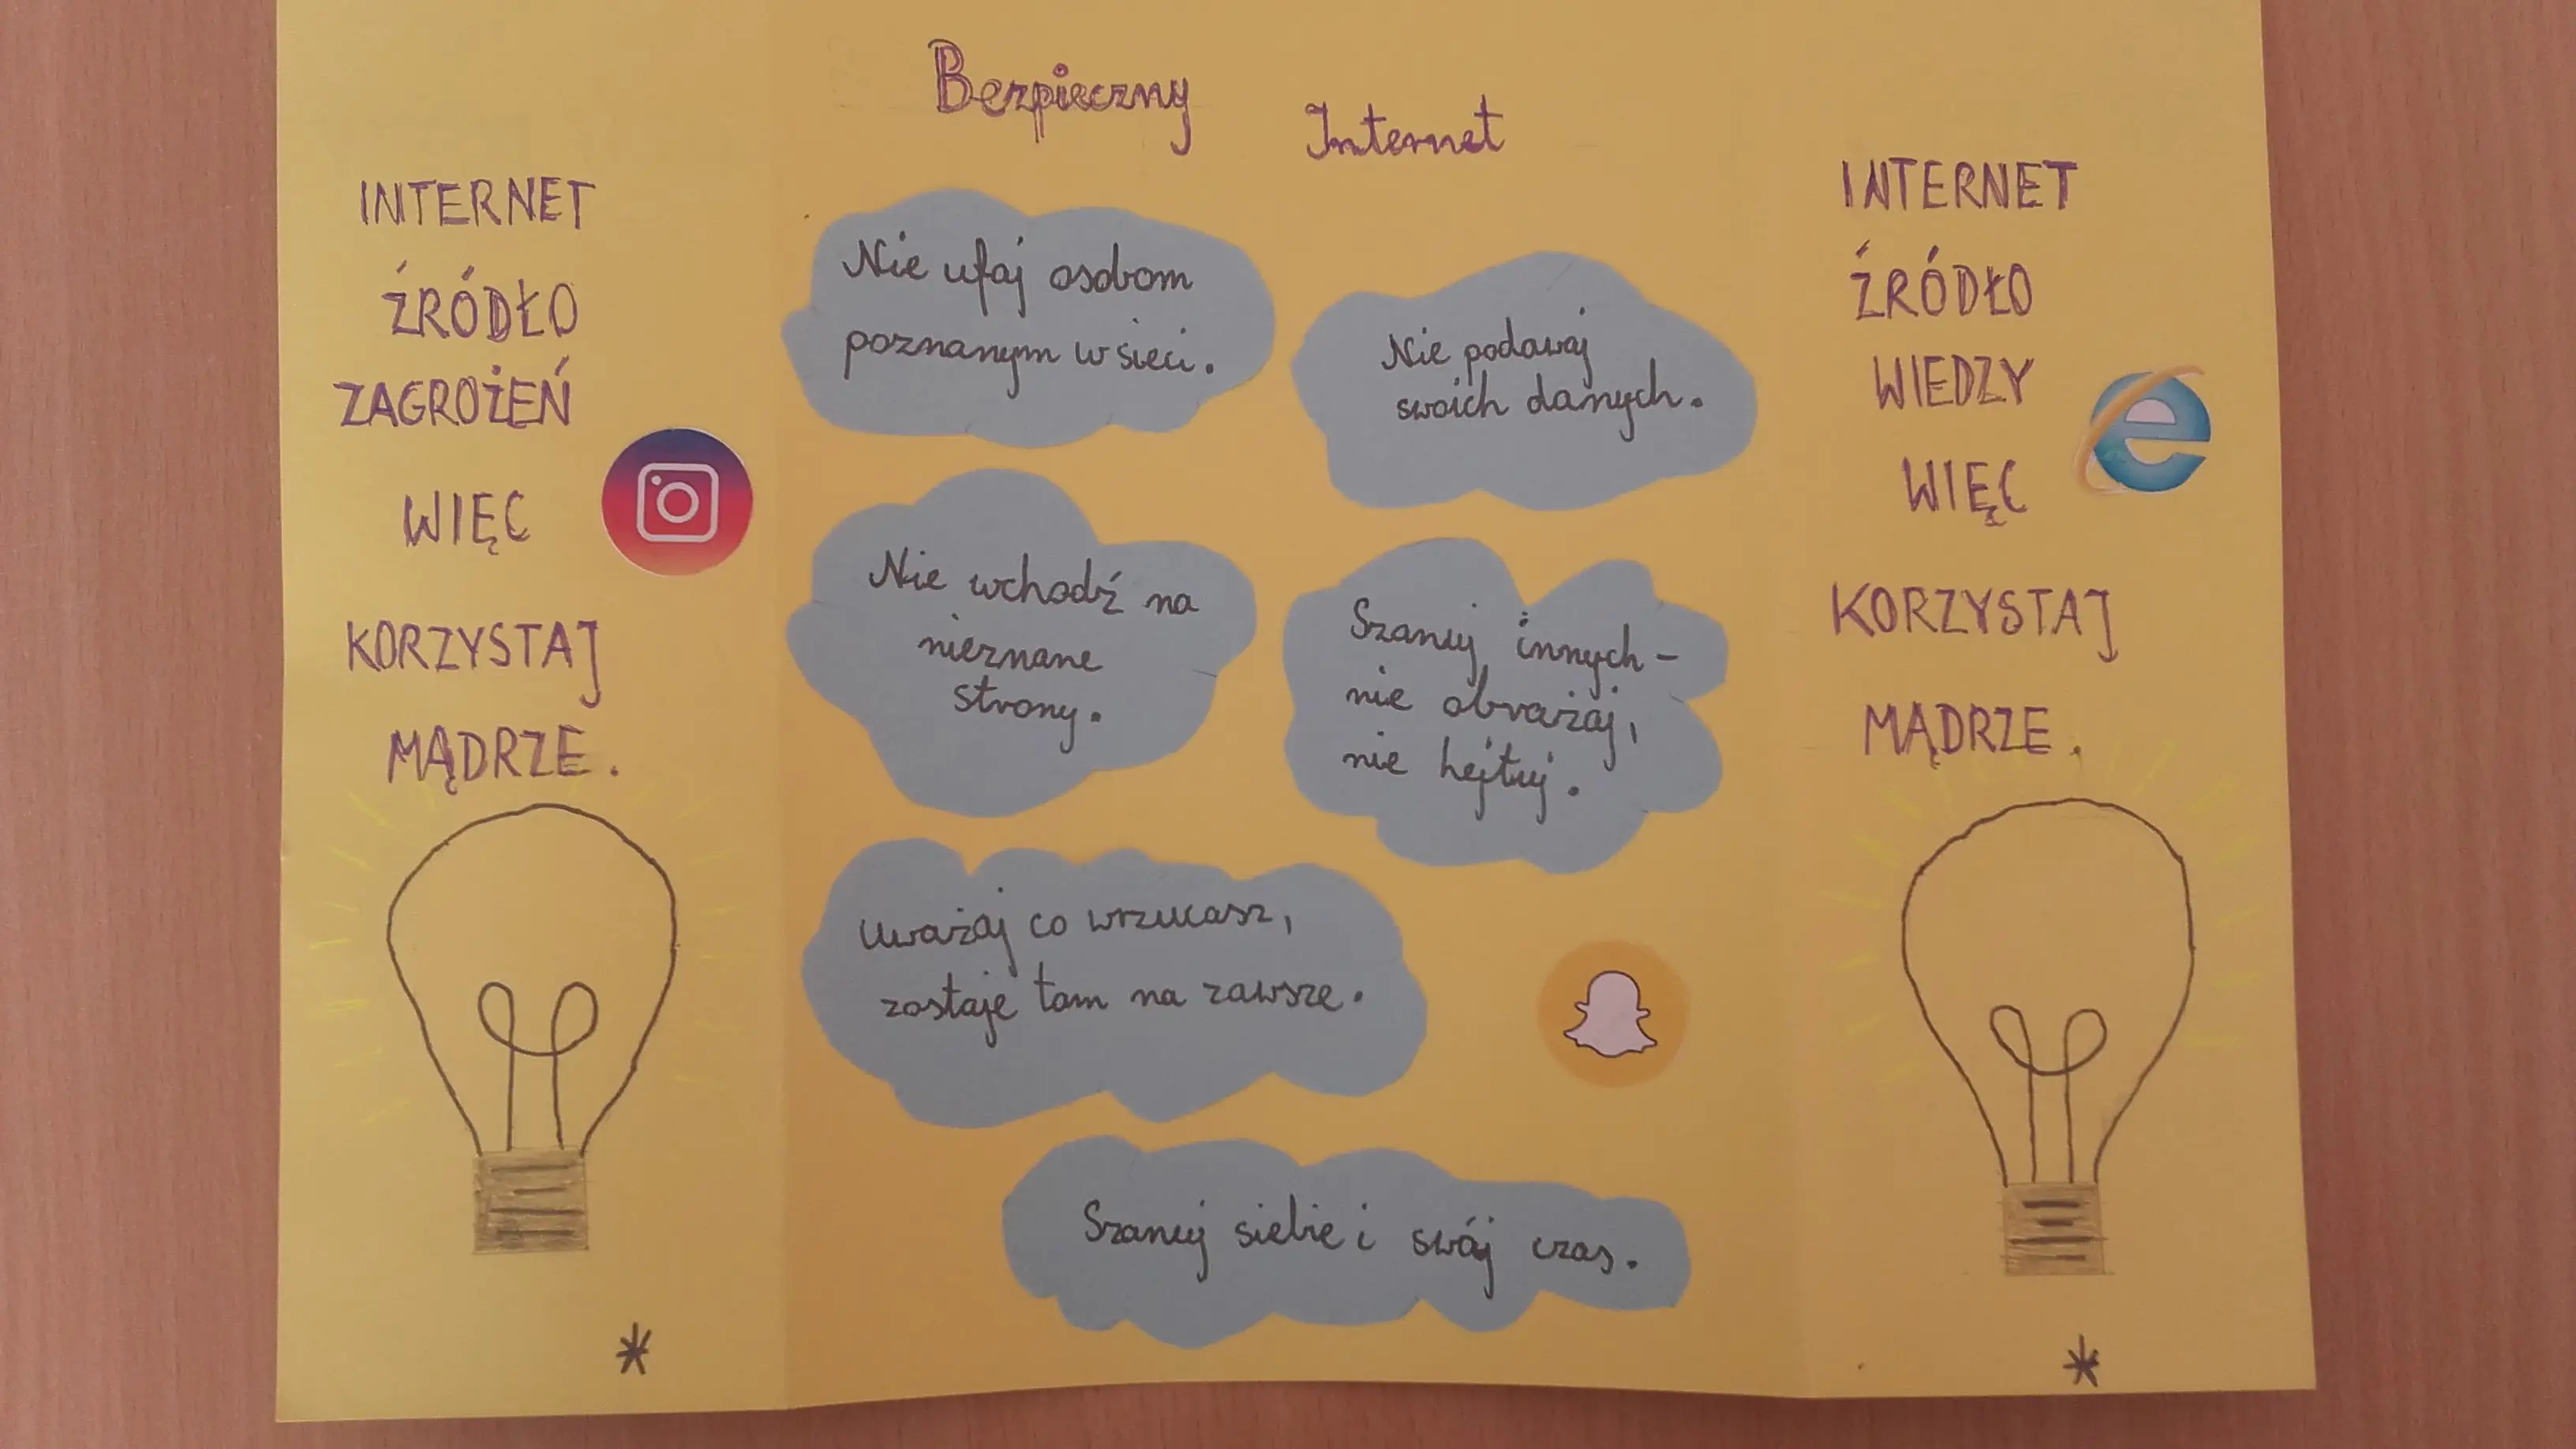 Bezpieczny
Internet
INTERNET
ŹRÓDŁO
ZAGROŻEŃ
WIĘC
KORZYSTAJ
MĄDRZE.
Nie ufaj osobom
poznanym w sieci.
Nie podawaj
swoich danych.
Nie wchodź na
nieznane
strony.
Szanuj innych-
nie obrażaj,
nie hejtuj.
Uważaj co wrzucasz,
zostaje tam na zawsze.
Szanuj siebie i swój czas.
INTERNET
ŹRÓDŁO
WIEDZY
WIĘC
KORZYSTAJ
MĄDRZE.